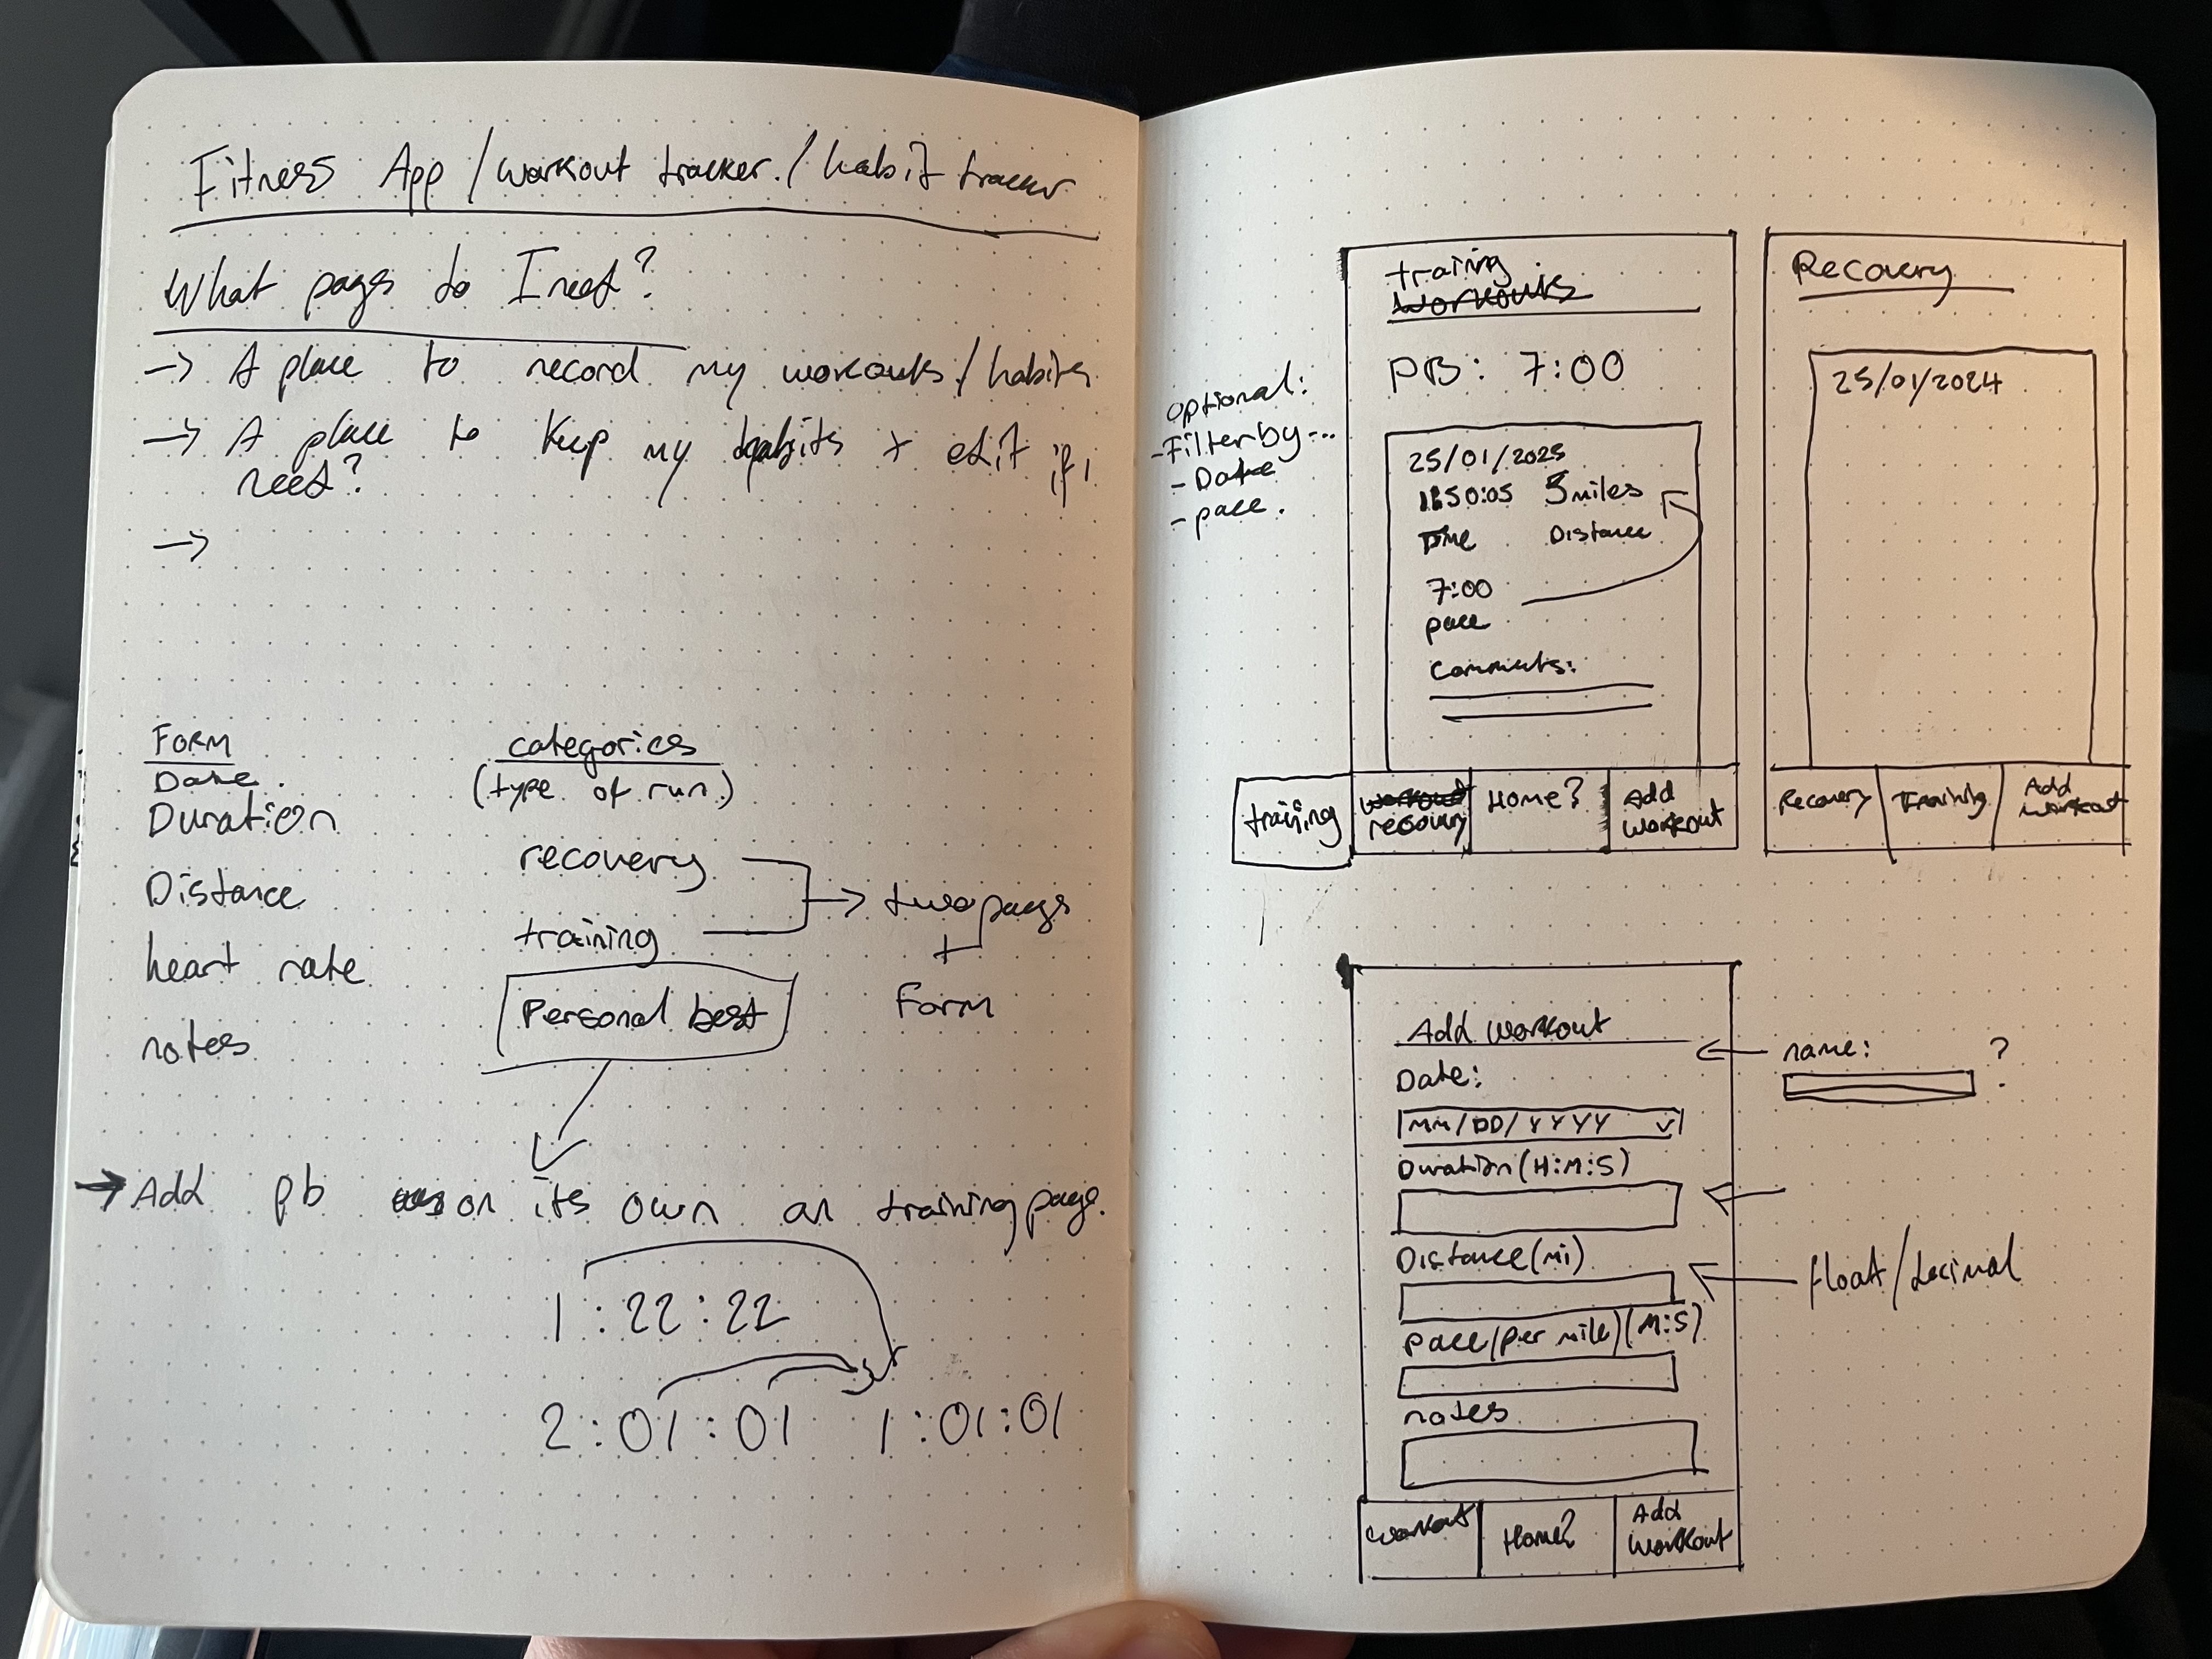 Fitness App / workout tracker. / habit tracker
What pages do I need?
-> A place to record my workouts / habits
-> A place to keep my habits + edit if i
need?
->
FORM
Date.
Duration
Distance
heart rate
notes
categories
(type of run)
recovery
training
Personal best
-> two pages
+
Form
-> Add pb on its own on training page.
1:22:22
2:01:01 1:01:01
optional:
- Filter by -..
- Date
- pace.
traing
workouts
PB: 7:00
25/01/2025
50:05 5miles
Time Distance
7:00
pace
Comments:
training
workout
recovery
Home?
Add
workout
Recovery
25/01/2024
Recovery
Training
Add
workout
Add workout
Date:
MM/DD/YYYY
Duration (H:M:S)
Distance (mi)
pace (per mile) (M:S)
notes
workout
Home?
Add
workout
name: ?
float/decimal